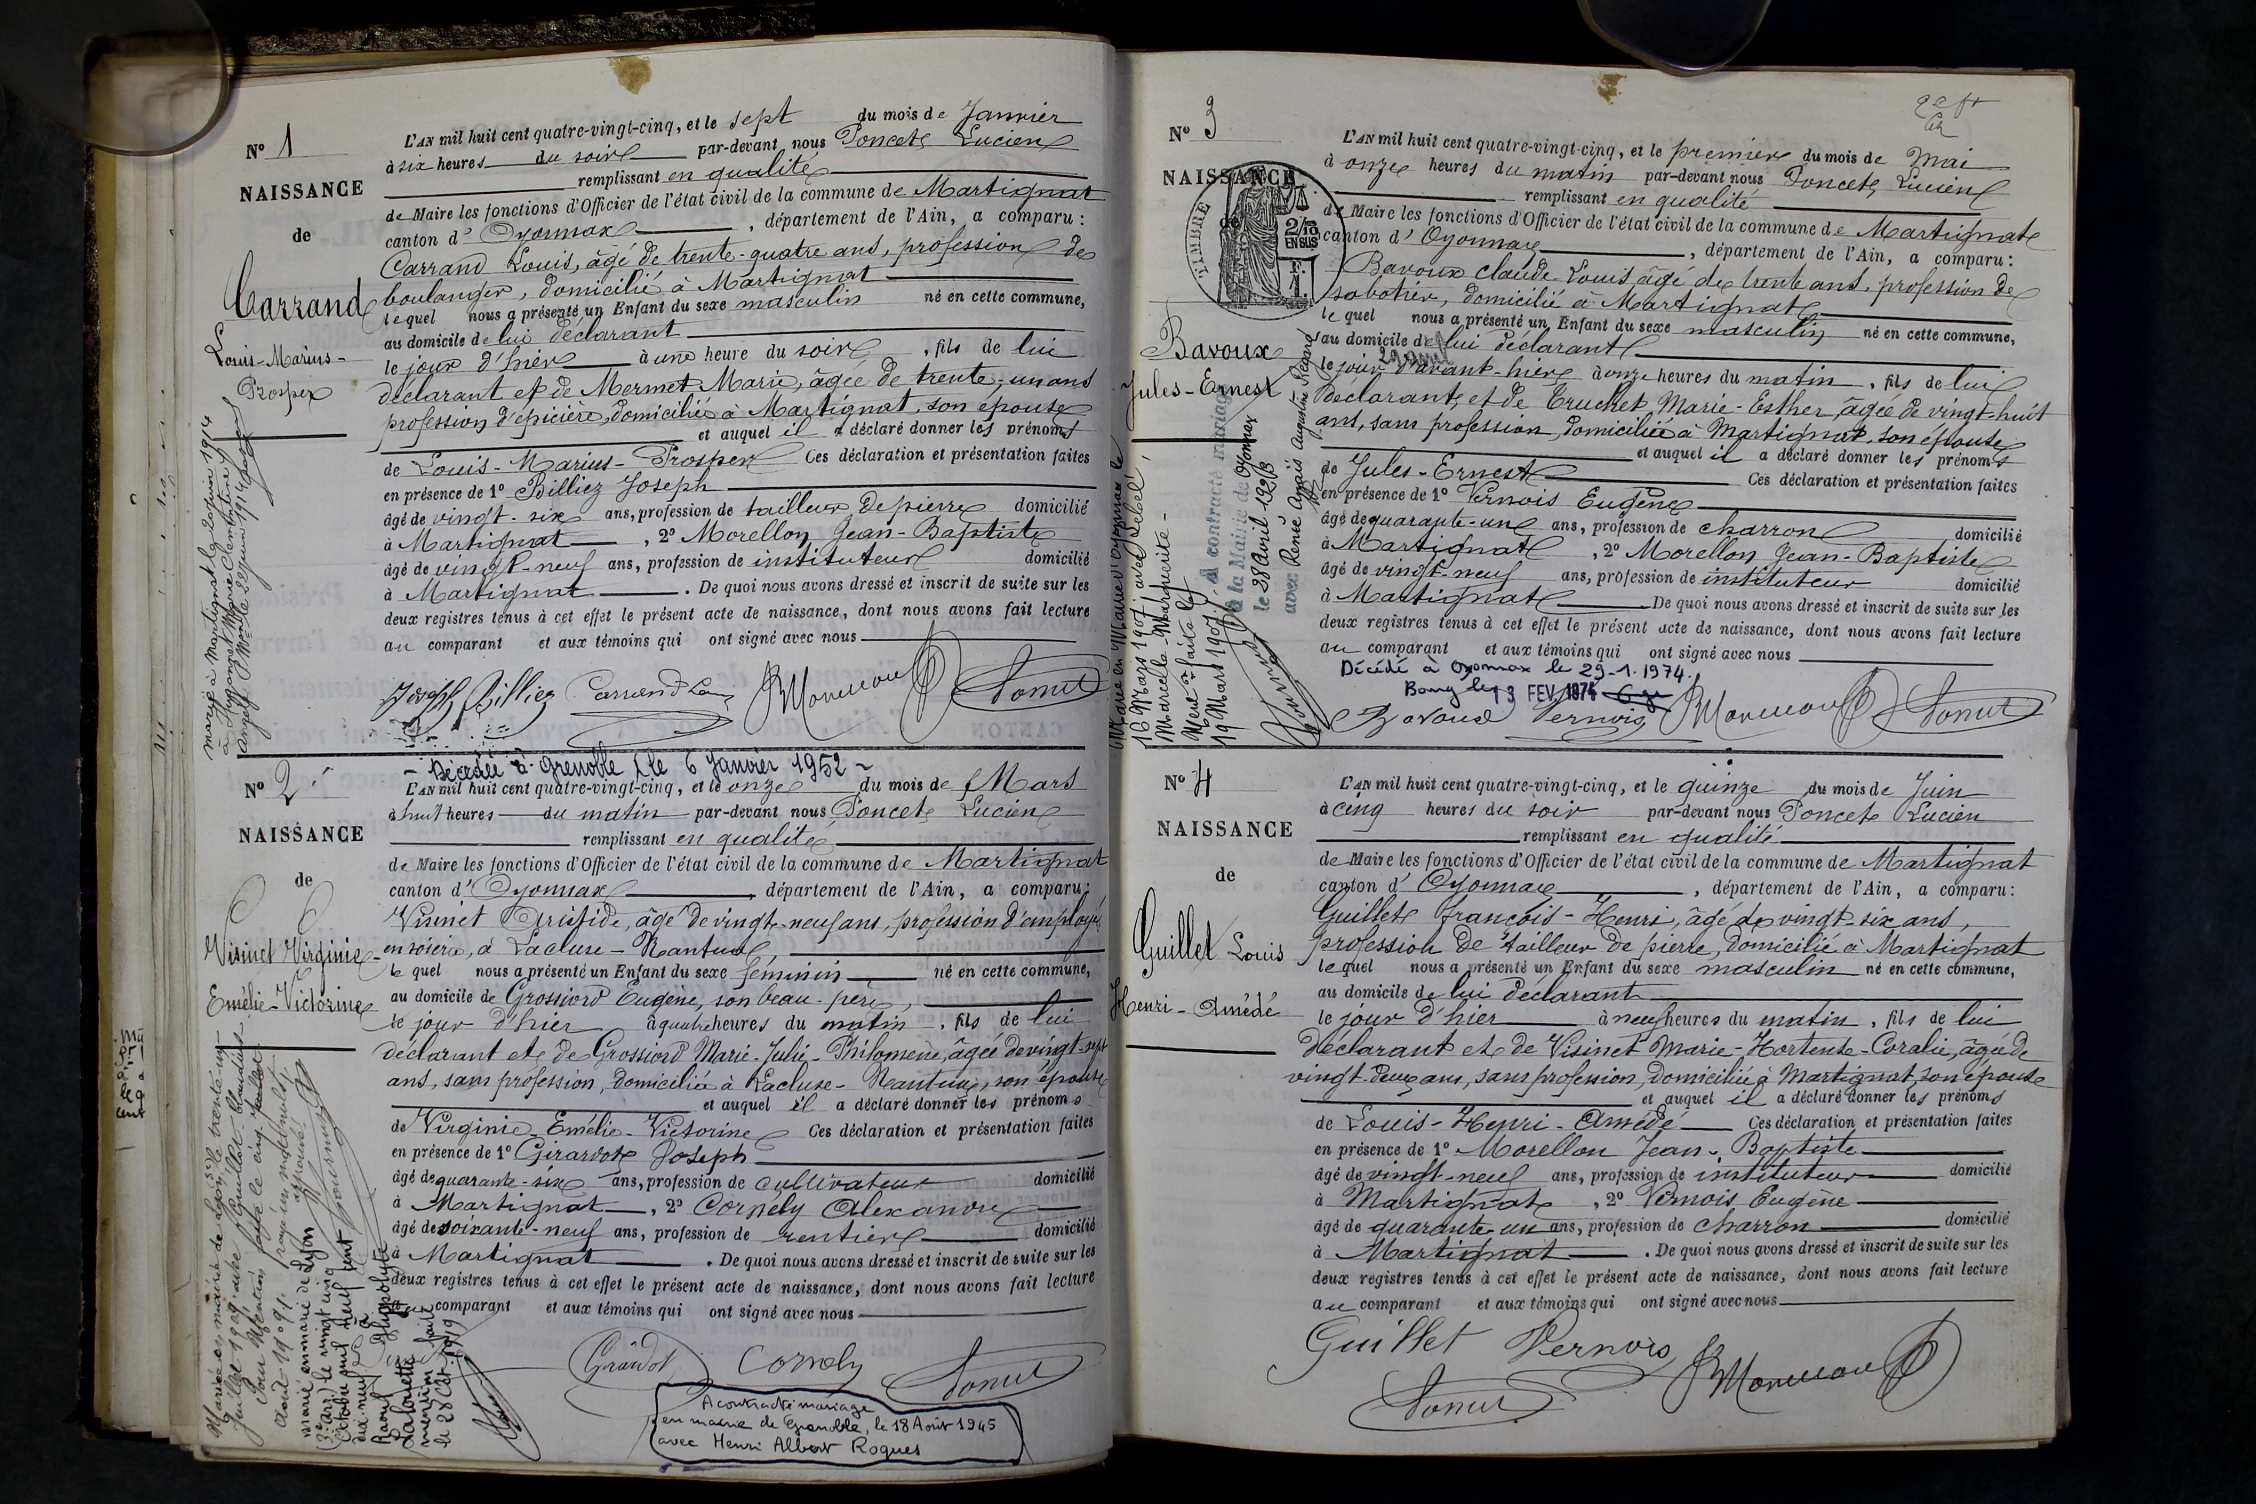 N° 1
NAISSANCE
de
Carrand
Louis-Marius-
Prosper
L'AN mil huit cent quatre-vingt-cinq, et le sept du mois de Janvier
à six heures du soir par-devant nous Poncet Lucien
remplissant en qualité
de Maire les fonctions d'Officier de l'état civil de la commune de Martignat
canton d' Oyonnax, département de l'Ain, a comparu :
Carrand Louis, âgé de trente-quatre ans, profession de
boulanger, domicilié à Martignat
lequel nous a présenté un Enfant du sexe masculin né en cette commune,
au domicile de lui déclarant
le jour d'hier à une heure du soir, fils de lui
déclarant et de Mermet Marie, âgée de trente-un ans
profession d'épicière, domiciliée à Martignat, son épouse
et auquel il a déclaré donner les prénoms
de Louis-Marius-Prosper Ces déclaration et présentation faites
en présence de 1° Billiez Joseph
âgé de vingt-six ans, profession de tailleur de pierre domicilié
à Martignat, 2° Morellon Jean-Baptiste
âgé de vingt-neuf ans, profession de instituteur domicilié
à Martignat. De quoi nous avons dressé et inscrit de suite sur les
deux registres tenus à cet effet le présent acte de naissance, dont nous avons fait lecture
au comparant et aux témoins qui ont signé avec nous
Joseph Billiez Carrand Louis
marié à Martignat le 20 juin 1914
N° 2
NAISSANCE
de
Visinet Virginie-
Emélie-Victorine
- Décédée à Grenoble le 6 Janvier 1952 -
L'AN mil huit cent quatre-vingt-cinq, et le onze du mois de Mars
à huit heures du matin par-devant nous Poncet Lucien
remplissant en qualité
de Maire les fonctions d'Officier de l'état civil de la commune de Martignat
canton d' Oyonnax, département de l'Ain, a comparu :
Visinet Aristide, âgé de vingt-neuf ans, profession d'employé
en soierie, à Lacluse-Nantua,
lequel nous a présenté un Enfant du sexe féminin né en cette commune,
au domicile de Grossiord Eugène, son beau-père,
le jour d'hier à quatre heures du matin, fils de lui
déclarant et de Grossiord Marie-Julie-Philomène, âgée de vingt-sept
ans, sans profession, domiciliée à Lacluse-Nantua, son épouse
et auquel il a déclaré donner les prénoms
de Virginie Emélie-Victorine Ces déclaration et présentation faites
en présence de 1° Girardot Joseph
âgé de quarante-six ans, profession de cultivateur domicilié
à Martignat, 2° Cornely Alexandre
âgé de soixante-neuf ans, profession de rentier domicilié
à Martignat. De quoi nous avons dressé et inscrit de suite sur les
deux registres tenus à cet effet le présent acte de naissance, dont nous avons fait lecture
au comparant et aux témoins qui ont signé avec nous
Girardot Cornely
A contracté mariage
en mairie de Grenoble, le 18 Août 1945
avec Henri Albert Roques
marié en mairie de Lyon
(3e arr) le vingt cinq
octobre mil neuf cent
dix-neuf à
Raoul Hippolyte
Lalouette
mention faite
le 28 Oct. 1919
N° 3
NAISSANCE
de
TIMBRE
2/10
EN SUS
Bavoux
Jules-Ernest
L'AN mil huit cent quatre-vingt-cinq, et le premier du mois de Mai
à onze heures du matin par-devant nous Poncet Lucien
remplissant en qualité
de Maire les fonctions d'Officier de l'état civil de la commune de Martignat
canton d' Oyonnax, département de l'Ain, a comparu :
Bavoux Claude-Louis, âgé de trente ans, profession de
sabotier, domicilié à Martignat
lequel nous a présenté un Enfant du sexe masculin né en cette commune,
au domicile de lui déclarant
29 avril
le jour d'avant-hier à onze heures du matin, fils de lui
déclarant, et de Truchet Marie-Esther, âgée de vingt-huit
ans, sans profession, domiciliée à Martignat, son épouse
et auquel il a déclaré donner les prénoms
de Jules-Ernest Ces déclaration et présentation faites
en présence de 1° Vernois Eugène
âgé de quarante-un ans, profession de charron domicilié
à Martignat, 2° Morellon Jean-Baptiste
âgé de vingt-neuf ans, profession de instituteur domicilié
à Martignat. De quoi nous avons dressé et inscrit de suite sur les
deux registres tenus à cet effet le présent acte de naissance, dont nous avons fait lecture
au comparant et aux témoins qui ont signé avec nous
Décédé à Oyonnax le 29-1-1974.
Bourg le 13 FEV. 1974
Bavoux Vernois
Marié en Mairie d'Oyonnax le
16 Mars 1907, avec
Marcelle-Marguerite-
Ment° faite le
19 Mars 1907
A contracté mariage
à la Mairie de Oyonnax
le 28 Avril 1928
avec Renée Anaïs Augustine
N° 4
NAISSANCE
de
Guillet Louis
Henri-Amédé
L'AN mil huit cent quatre-vingt-cinq, et le quinze du mois de Juin
à cinq heures du soir par-devant nous Poncet Lucien
remplissant en qualité
de Maire les fonctions d'Officier de l'état civil de la commune de Martignat
canton d' Oyonnax, département de l'Ain, a comparu :
Guillet François-Henri, âgé de vingt-six ans,
profession de tailleur de pierre, domicilié à Martignat
lequel nous a présenté un Enfant du sexe masculin né en cette commune,
au domicile de lui déclarant
le jour d'hier à neuf heures du matin, fils de lui
déclarant et de Visinet Marie-Hortense-Coralie, âgée de
vingt-deux ans, sans profession, domiciliée à Martignat, son épouse
et auquel il a déclaré donner les prénoms
de Louis-Henri-Amédé Ces déclaration et présentation faites
en présence de 1° Morellon Jean-Baptiste
âgé de vingt-neuf ans, profession de instituteur domicilié
à Martignat, 2° Vernois Eugène
âgé de quarante-un ans, profession de charron domicilié
à Martignat. De quoi nous avons dressé et inscrit de suite sur les
deux registres tenus à cet effet le présent acte de naissance, dont nous avons fait lecture
au comparant et aux témoins qui ont signé avec nous
Guillet Vernois